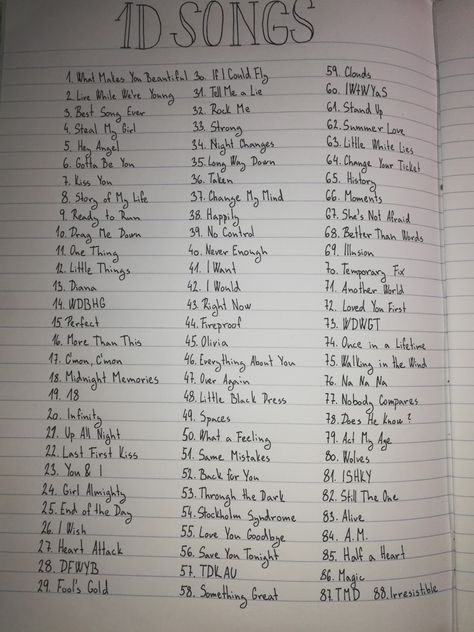 1D SONGS
1. What Makes You Beautiful
2. Live While We're Young
3. Best Song Ever
4. Steal My Girl
5. Hey Angel
6. Gotta Be You
7. Kiss You
8. Story of My Life
9. Ready to Run
10. Drag Me Down
11. One Thing
12. Little Things
13. Diana
14. WDBHG
15. Perfect
16. More Than This
17. C'mon, C'mon
18. Midnight Memories
19. 18
20. Infinity
21. Up All Night
22. Last First Kiss
23. You & I
24. Girl Almighty
25. End of the Day
26. I Wish
27. Heart Attack
28. DFWYB
29. Fool's Gold
30. If I Could Fly
31. Tell Me a Lie
32. Rock Me
33. Strong
34. Night Changes
35. Long Way Down
36. Taken
37. Change My Mind
38. Happily
39. No Control
40. Never Enough
41. I Want
42. I Would
43. Right Now
44. Fireproof
45. Olivia
46. Everything About You
47. Over Again
48. Little Black Dress
49. Spaces
50. What a Feeling
51. Same Mistakes
52. Back for You
53. Through the Dark
54. Stockholm Syndrome
55. Love You Goodbye
56. Save You Tonight
57. TDKAU
58. Something Great
59. Clouds
60. IWtWYaS
61. Stand Up
62. Summer Love
63. Little White Lies
64. Change Your Ticket
65. History
66. Moments
67. She's Not Afraid
68. Better Than Words
69. Illusion
70. Temporary Fix
71. Another World
72. Loved You First
73. WDWGT
74. Once in a Lifetime
75. Walking in the Wind
76. Na Na Na
77. Nobody Compares
78. Does He Know?
79. Act My Age
80. Wolves
81. ISHKY
82. Still The One
83. Alive
84. A.M.
85. Half a Heart
86. Magic
87. TMD 88. Irresistible